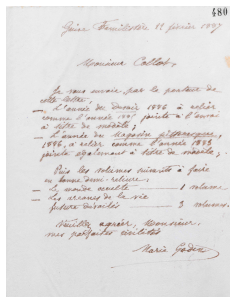 480
Guise Familistère 12 février 1897
Monsieur Collot,
Je vous envoie par le porteur de
cette lettre,
— L'année du Devoir 1896 à relier
comme l'année 1895 jointe à l'envoi
à titre de modèle;
— L'année du Magasin pittoresque,
1896, à relier comme l'année 1895
jointe également à titre de modèle,
Puis les volumes suivants à faire
en bonne demi-reliure,
— Le monde 1 volume
— Les arcanes de la vie
future dévoilés — 3 volumes.
Veuillez agréer, Monsieur,
mes parfaites civilités
Marie Godin